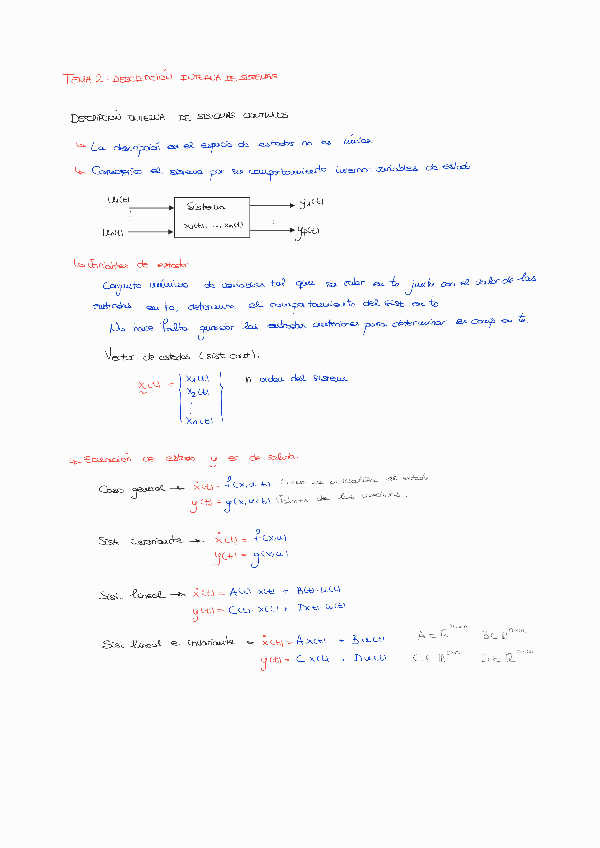 TEMA 2. DESCRIPCIÓN INTERNA DE SISTEMAS
DESCRIPCIÓN INTERNA DE SISTEMAS CONTINUOS
↳ La descripción en el espacio de estados no es única.
↳ Caracterizo el sistema por su comportamiento interno: variables de estado
u1(t)
Sistema
x1(t), ..., xn(t)
y1(t)
yp(t)
↳ Variables de estado
Conjunto mínimo de variables tal que su valor en to junto con el valor de las
entradas en to, determina el comportamiento del sist en to
No hace falta guardar las entradas anteriores para determinar su comp en to.
Vector de estados (sist. cont):
x(t) =
x1(t)
x2(t)
⋮
xn(t)
n orden del sistema
↳ Ecuación de estado y ec de salida.
Caso general → ẋ(t) = f(x, u, t)
y(t) = g(x, u, t)
Sist. invariante → ẋ(t) = f(x,u)
y(t) = g(x,u)
Sist. lineal → ẋ(t) = A(t)·x(t) + B(t)·u(t)
y(t) = C(t)·x(t) + D(t)·u(t)
Sist lineal e invariante = ẋ(t) = A x(t) + B u(t) A ∈ ℝ B ∈ ℝ
y(t) = C x(t) + D u(t) C ∈ ℝ D ∈ ℝ